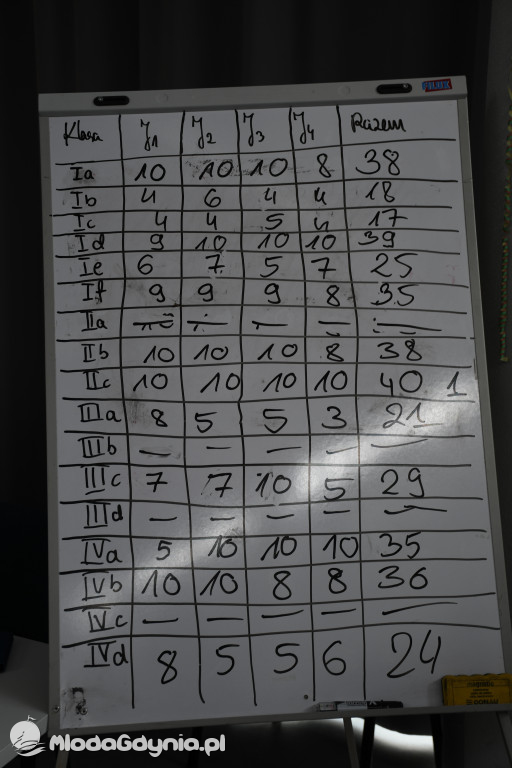 Klasa J1 J2 J3 J4 Razem
Ia 10 10 10 8 38
Ib 4 6 4 4 18
Ic 4 4 5 4 17
Id 9 10 10 10 39
Ie 6 7 5 7 25
If 9 9 9 8 35
IIa — — — — —
IIb 10 10 10 8 38
IIc 10 10 10 10 40 1
IIIa 8 5 5 3 21
IIIb — — — — —
IIIc 7 7 10 5 29
IIId — — — — —
IVa 5 10 10 10 35
IVb 10 10 8 8 36
IVc — — — — —
IVd 8 5 5 6 24
MlodaGdynia.pl